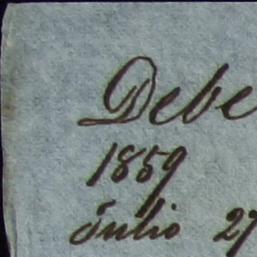 Debe
1859
Julio 27